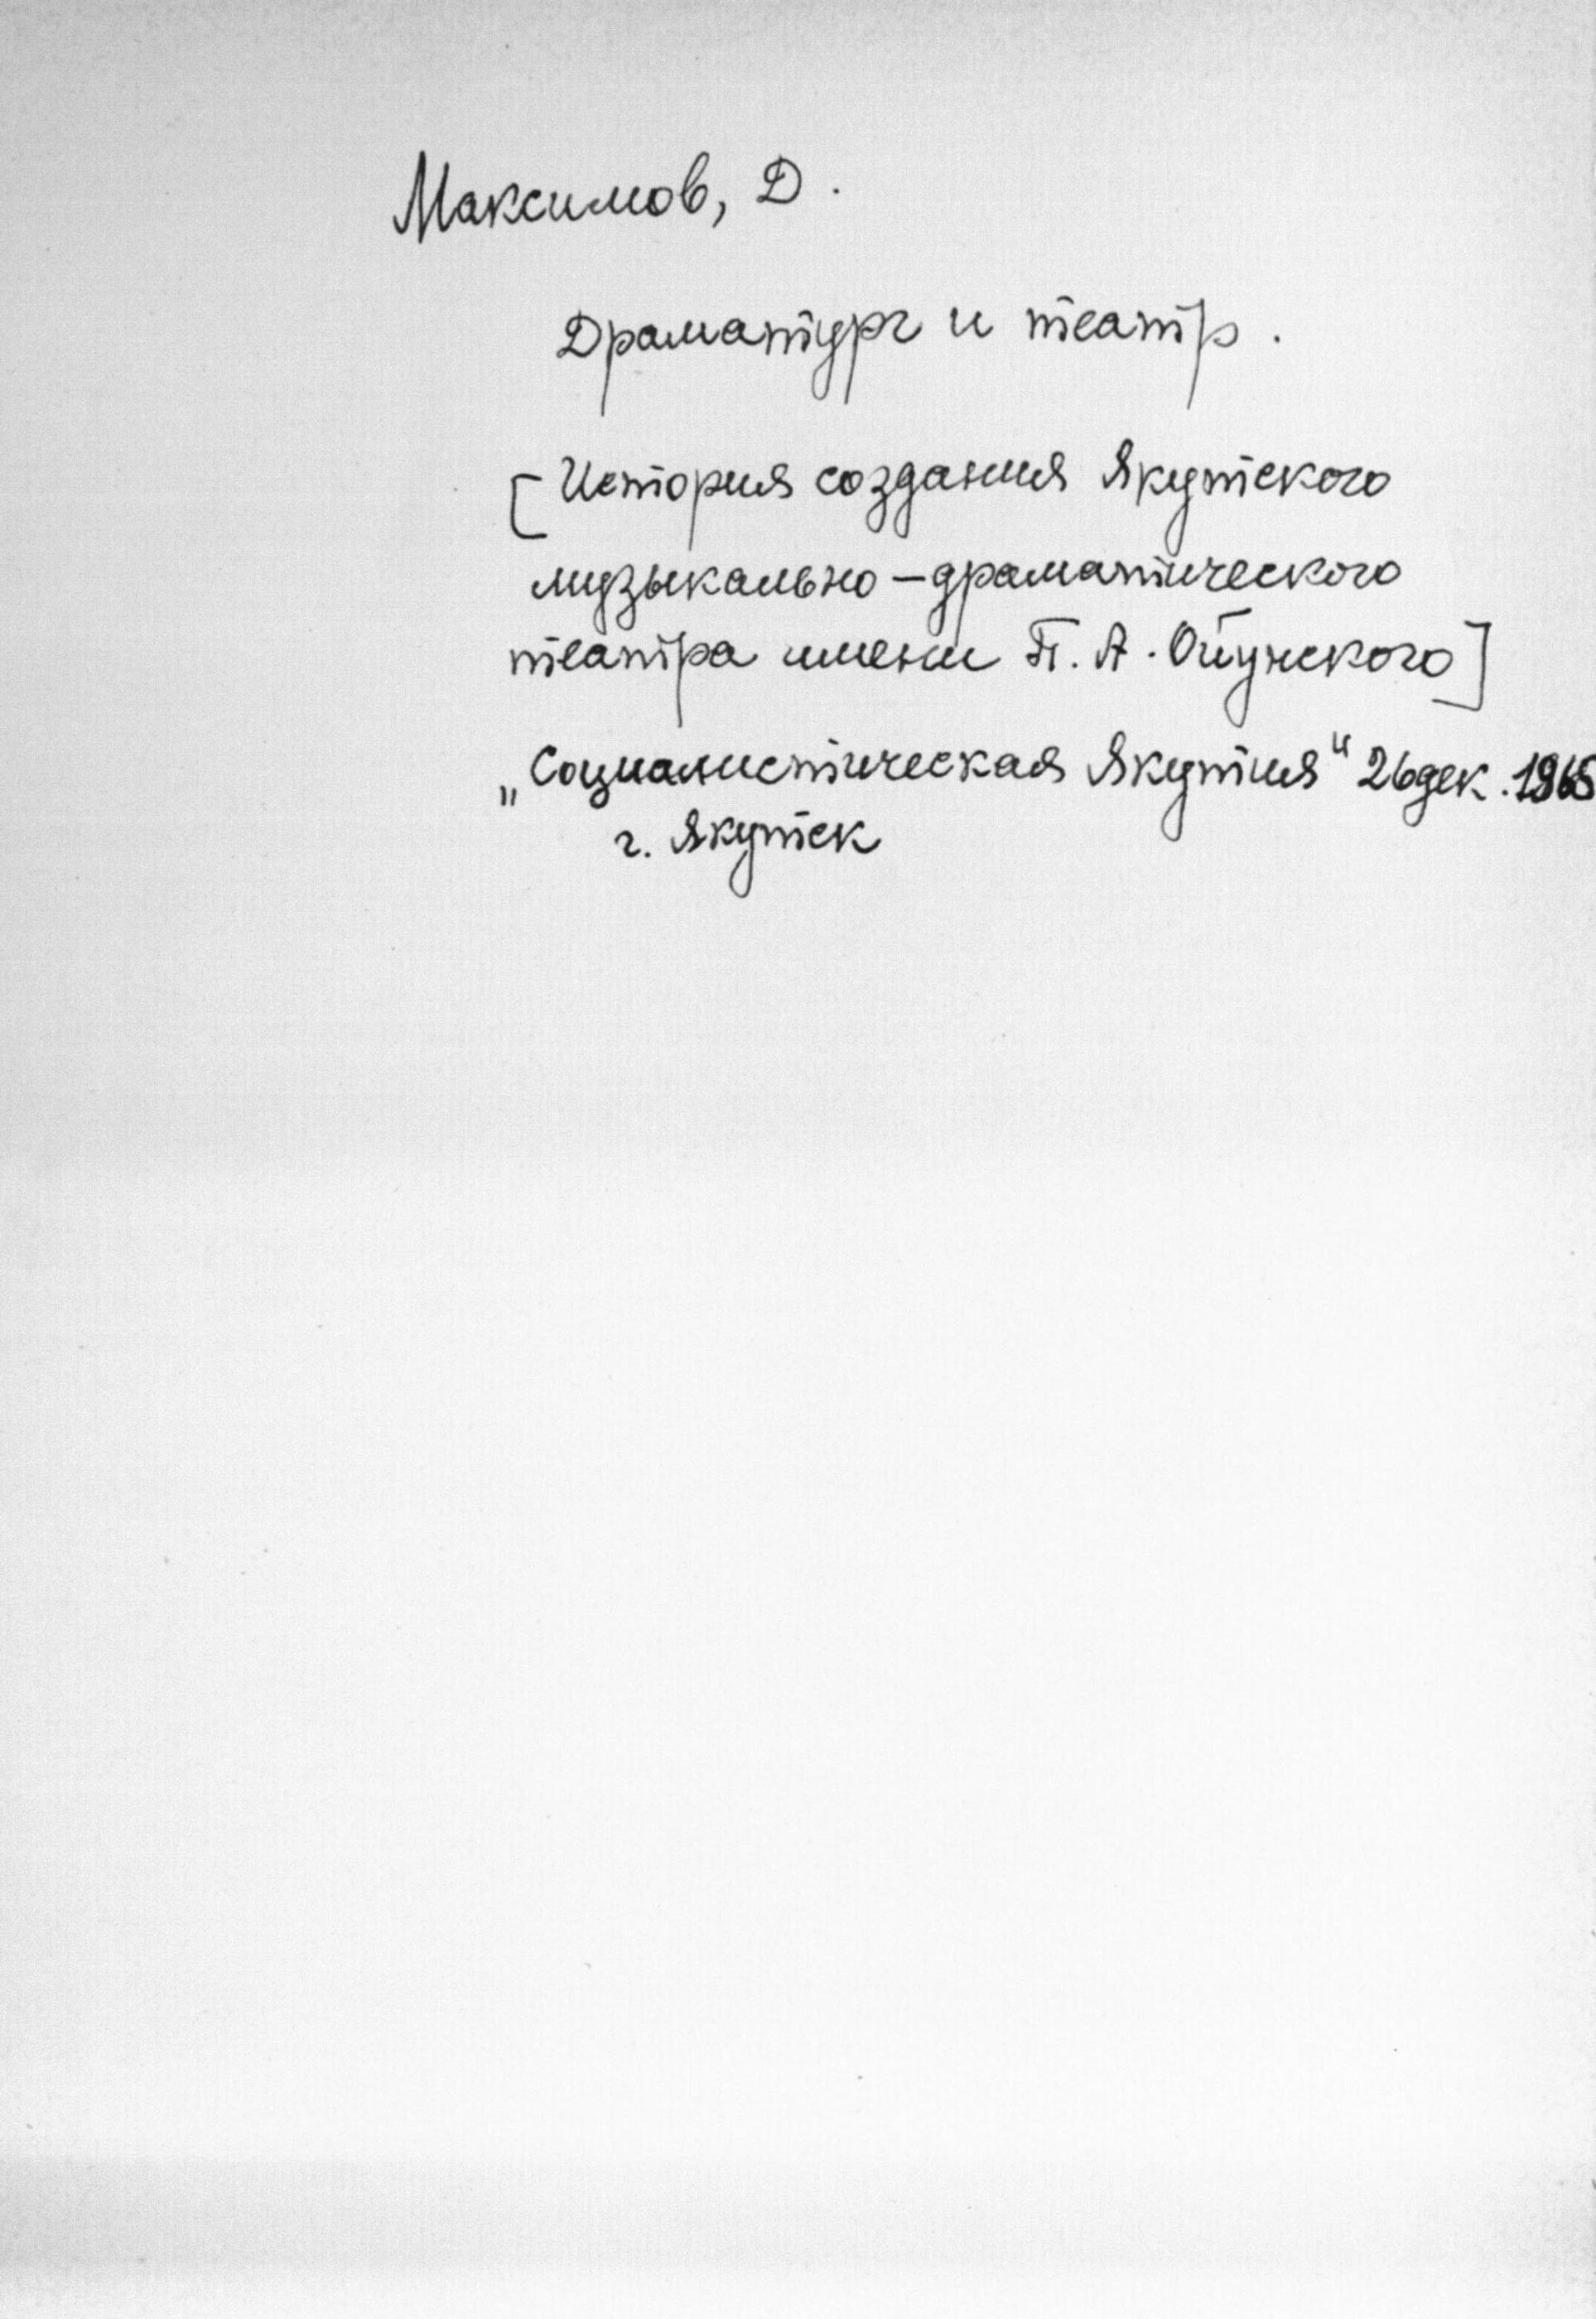 Максимов, Д.
Драматург и театр.
[История создания Якутского
музыкально-драматического
театра имени П. А. Ойунского]
„Социалистическая Якутия“ 26 дек. 1965
г. Якутск